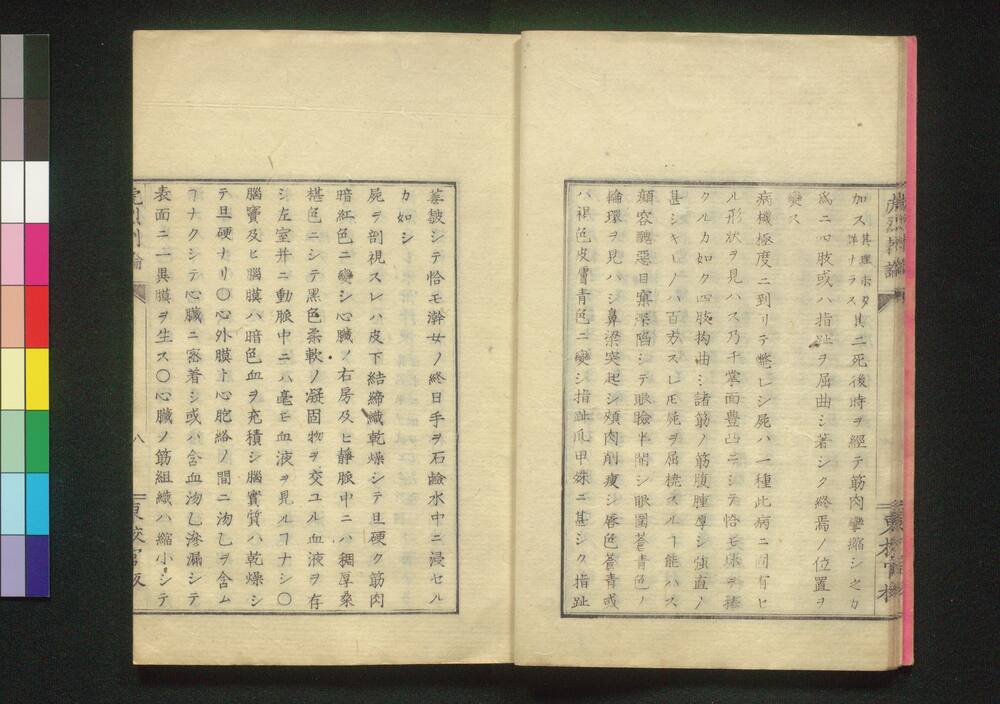 虎烈刺論
加ス其理未タ詳ナラス其二死後時ヲ經テ筋肉攣縮シ之カ
為ニ四肢或ハ指趾ヲ屈曲シ著シク終焉ノ位置ヲ
變ス
病機極度ニ到リテ斃レシ屍ハ一種此病ニ固有セ
ル形狀ヲ見ハス乃チ掌面豊凸ニシテ恰モ球ヲ捧
クルカ如ク四肢拘曲シ諸筋ノ筋腹腫厚シ強直ノ
甚シキモノハ百方スレ𪜈屍ヲ屈撓スルヿ能ハス
顔容醜惡目窠深陷シテ眼瞼半開シ眼圍蒼青色ノ
輪環ヲ見ハシ鼻梁突起シ頰肉削瘦シ唇色蒼青或
ハ褐色皮膚青色ニ變シ指趾爪甲殊ニ甚シク指趾
皺シテ恰モ澣女ノ終日手ヲ石鹼水中ニ浸セル
カ如シ
屍ヲ剖視スレハ皮下結締織乾燥シテ且硬ク筋肉
暗紅色ニ變シ心臓ノ右房及ヒ靜脈中ニハ稠厚桑
椹色ニシテ黑色柔軟ノ凝固物ヲ交ユル血液ヲ存
シ左室并ニ動脈中ニハ毫モ血液ヲ見ルヿナシ〇
腦竇及ヒ腦膜ハ暗色血ヲ充積シ腦實質ハ乾燥シ
テ且硬ナリ〇心外膜ト心胞絡ノ間ニ沕乙ヲ含ム
ヿナクシテ心臓ニ密着シ或ハ含血沕乙滲漏シテ
表面ニ一異膜ヲ生ス〇心臓ノ筋組織ハ縮小シテ
八